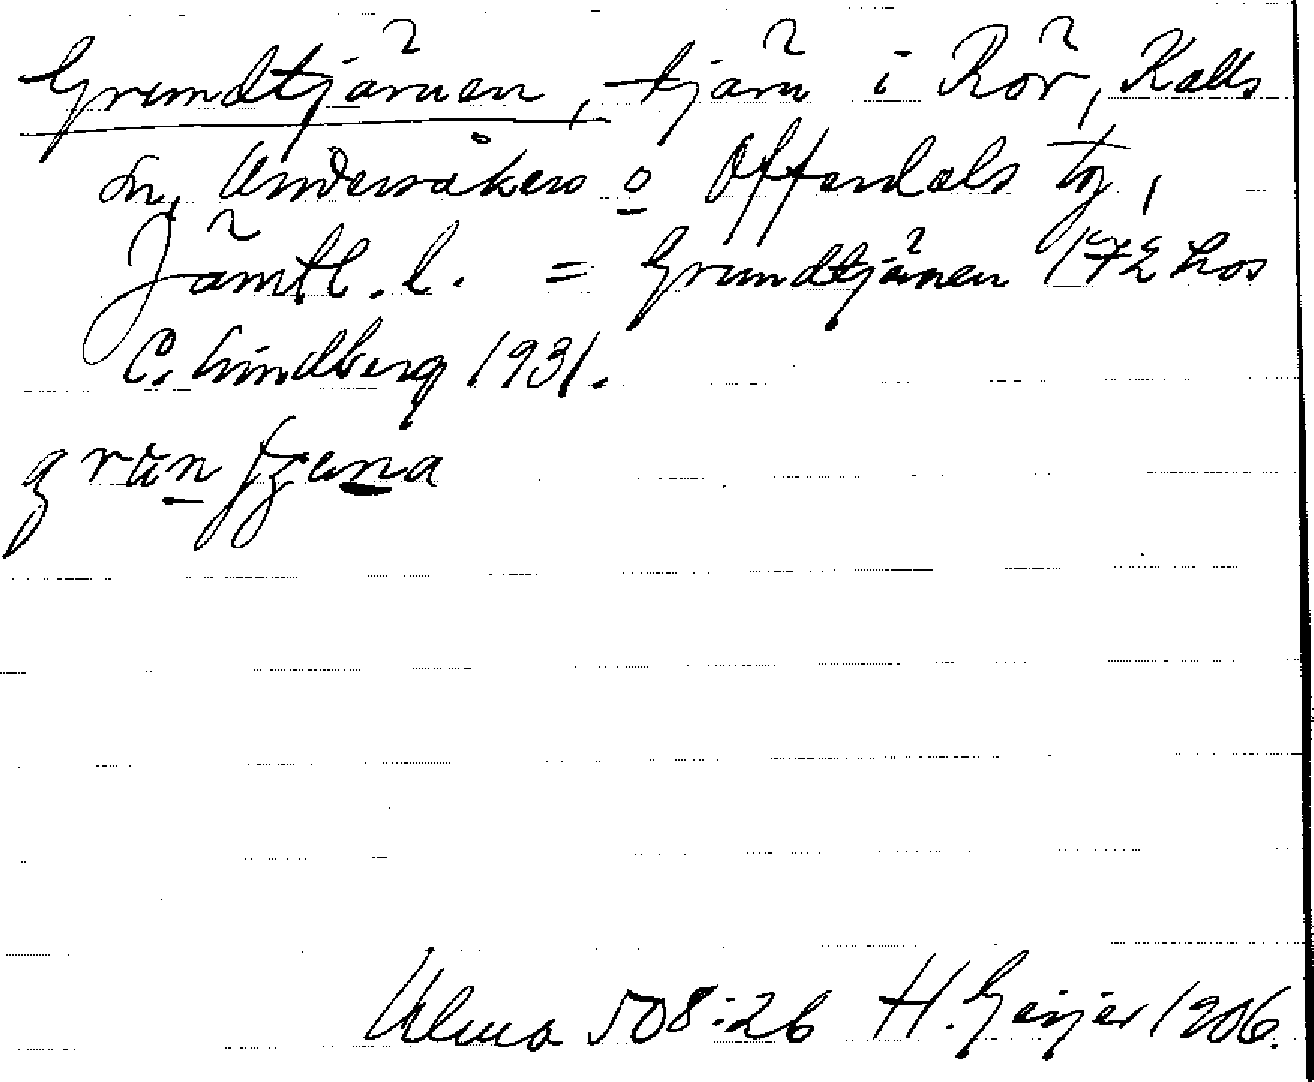 Grundtjärnen, tjärn i Rör, Kalls
sn, Undersåkers o Offerdals tg,
Jämtl. l. = Grundtjärnen 172 hos
C. Lindberg 1931.
Ulma 508:26 H. Geijer 1906.